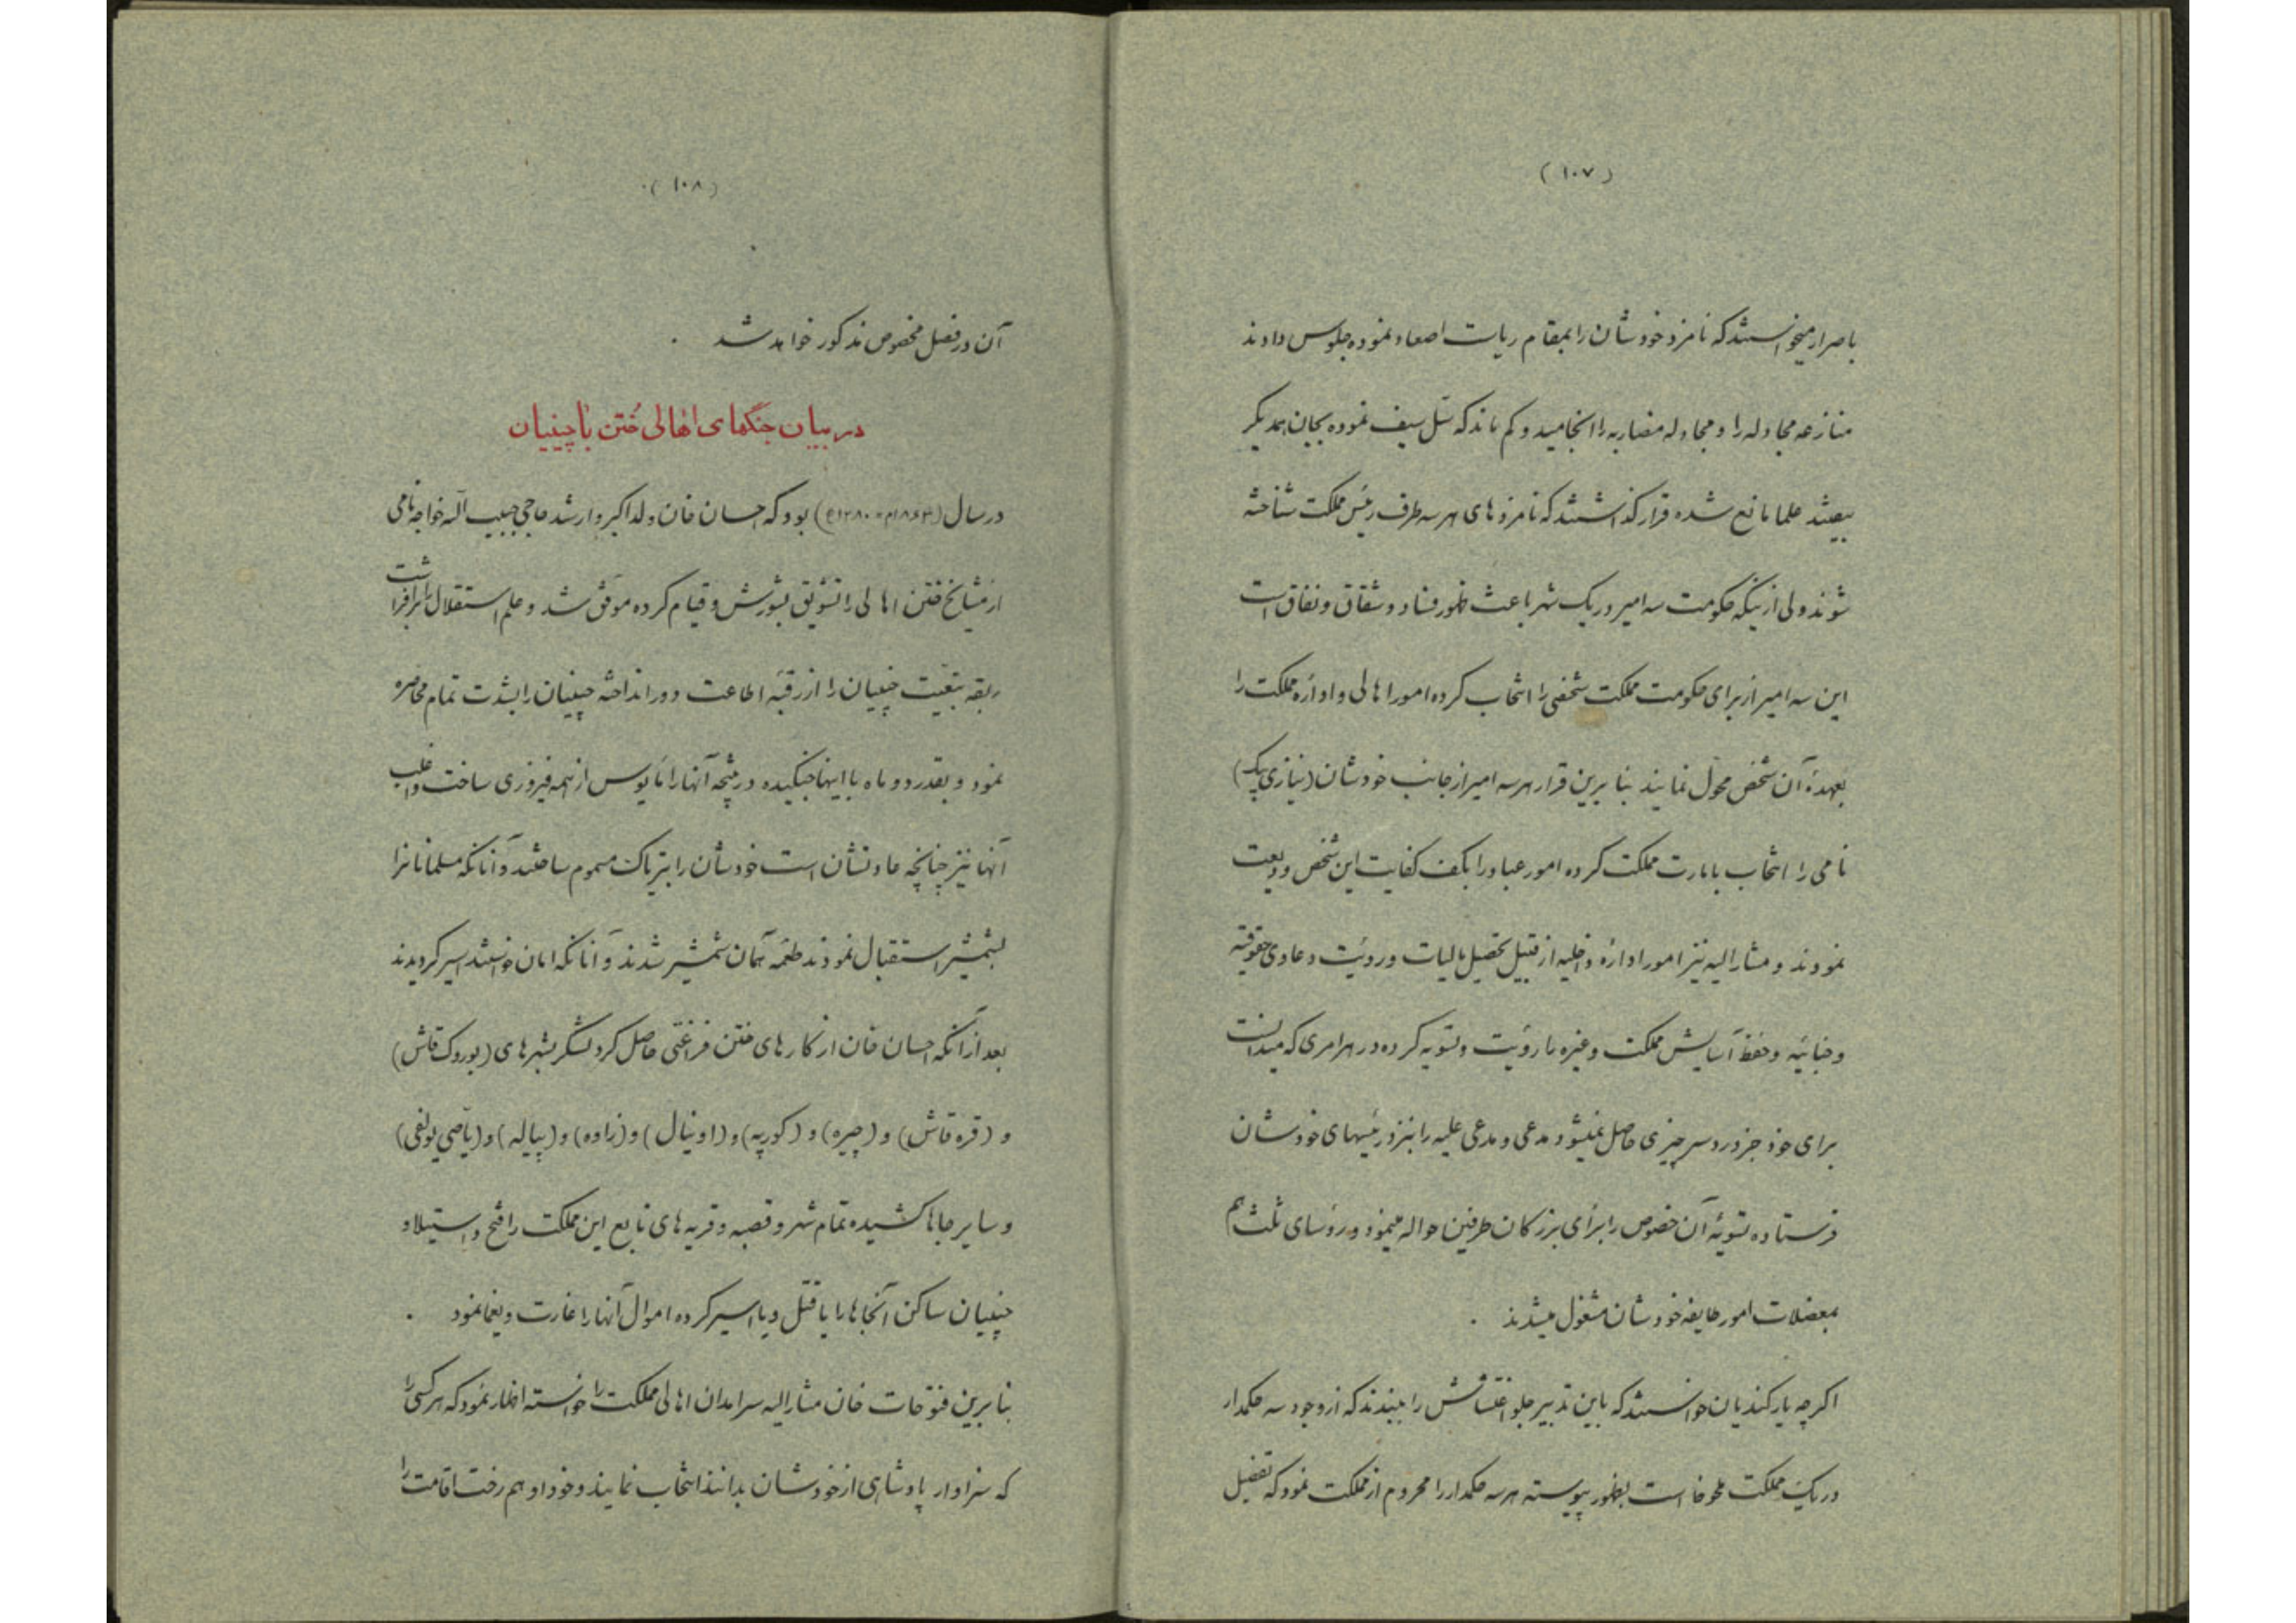 (١٠٧)
باصرار میخواستند که نامزد خودشان را بمقام ریاست اصعاد نموده جلوس دادند
منازعه مجادله را و مجادله مضاربه را انجامید و کم ماند که سَل سیف نموده بجان همدیگر
بیفتند علما مانع شده قرار گذاشتند که نامزدهای هر سه طرف رئیس مملکت شناخته
شوند ولی ازینکه حکومت سه امیر در یک شهر باعث ظهور فساد و شقاق و نفاق است
این سه امیر از برای حکومت مملکت شخصی را انتخاب کرده امور اهالی و ادارهٔ مملکت را
بعهدهٔ آن شخص محوّل نمایند بنا برین قرار هر سه امیر از جانب خودشان (نیازی بیک)
نامی را انتخاب بامارت مملکت کرده امور عباد را بکف کفایت این شخص ودیعت
نمودند و مشارالیه نیز امور ادارهٔ داخلیه از قبیل تحصیل مالیات و رویٔت دعاوی حقوقیّه
و جنائیّه و حفظ آسایش مملکت و غیره را رویٔت و تسویه کرده در هر امری که میدانست
برای خود جز درد سر چیزی حاصل نمیشود مدعی و مدعی علیه را بنزد رئیسهای خودشان
فرستاده تسویهٔ آن خصوص را برأی بزرگان طرفین حواله مینمود و رؤسای ثلث هم
بمعضلات امور طایفه خودشان مشغول میشدند .
اگرچه یارکندیان خواستند که باین تدبیر جلو اغتشاش را ببندند که از وجود سه حکمدار
در یک مملکت ملحوظ است بظهور پیوسته هر سه حکمدار را محروم از مملکت نمود که تفصیل
(١٠٨)
آن در فصل مخصوص مذکور خواهد شد .
در بیان جنگهای اهالی خُتن با چینیان
در سال (١٨٦٣م = ١٢٨٠ه) بود که احسان خان ولد اکبر و ارشد حاجی حبیب الله خواجه نامی
از مشایخ ختن اهالی را تشویق بشورش و قیام کرده موفّق شد و علم استقلال را برافراشت
ربقه تبعیّت چینیان را از رقبهٔ اطاعت دور انداخته چینیان را بشدت تمام محاصره
نمود و بقدر دو ماه با اینها جنگیده در نتیجه آنها را مأیوس از همه فیروزی ساخت و اغلب
آنها نیز چنانچه عادتشان است خودشان را بتریاک مسموم ساختند و آنانکه مسلمانانرا
بشمشیر استقبال نمودند طعمه همان شمشیر شدند و آنانکه امان خواستند اسیر گردیدند
بعد از آنکه احسان خان از کارهای ختن فراغتی حاصل کرد لشگر بشهرهای (یوروک قاش)
و (قره قاش) و (چیره) و (کوریه) و (اونیال) و (زاوه) و (پیاله) و (یاصی یولغی)
و سایر جاها کشیده تمام شهر و قصبه و قریه های تابع این مملکت را فتح و استیلا و
چینیان ساکن آنجاها را یا قتل و یا اسیر کرده اموال آنها را غارت و یغما نمود .
بنا برین فتوحات خان مشارالیه سرامدان اهالی مملکت را خواسته اظهار نمود که هر کسی را
که سزاوار پادشاهی از خودشان بدانند انتخاب نمایند و خود او هم رخت اقامت را